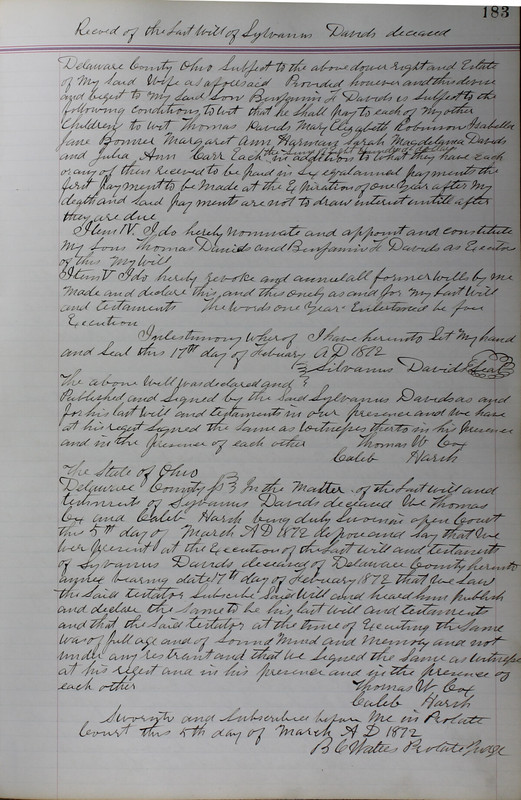 183
Record of the Last Will of Sylvanus Davids deceased
Delaware County Ohio Subject to the above dower right and Estate
of my said Wife as aforesaid Provided however and this devise
and beqest to my said Son Benjamin H Davids is subject to the
following conditions to wit that he shall pay to each of my other
Children to wit Thomas Davids Mary Elizabeth Robinson Isabella
Jane Bonner Margaret Ann Harman Sarah Magdelana Davids
and Julia Ann Carr Each the Sum of in addition to what they have each
or any of them received to be paid in Six eqal annual payments the
first payment to be made at the Expiration of one Year after my
death and said payments are not to draw interest untill after
they are due
Item IV. I do hereby nominate and appoint and constitute
my Sons Thomas Davids and Benjamin H Davids as Executors
of this my Will
Item V I do hereby revoke and annul all former wills by me
made and declare this and this only as and for my Last Will
and testament the words one Year Enterlined before
Execution
In testimony whereof I have hereunto Set my hand
and Seal this 17th day of Febuary A D 1872
Silvanus Davids Seal
The above Will was declared and
Published and Signed by the said Sylvanus Davids as and
for his last Will and testament in our presence and we have
at his reqest signed the same as Witnesses thereto in his presence
and in the presence of each other Thomas W Cox
Caleb Harsh
The State of Ohio
Delaware County ss In the Matter of the Last Will and
testament of Sylvanus Davids deceased We Thomas
Cox and Caleb Harsh being duly Sworn in open Court
this 5th day of March A D 1872 depose and say that we
wer present at the Execution of the Last Will and testament
of Sylvanus Davids deceased of Delaware County hereunto
annexed bearing date 17th day of Febuary 1872 that we saw
the said testator Subscribe said Will and heard him publish
and declare the same to be his last will and testament
and that the said testator at the time of Executing the same
was of full age and of Sound Mind and Memory and not
under any restraint and that we signed the same as Witnesses
at his reqest and in his presence and in the presence of
each other Thomas W. Cox
Caleb Harsh
Sworn to and Subscribed before Me in Probate
Court this 5th day of March A D 1872
B C Waters Probate Judge